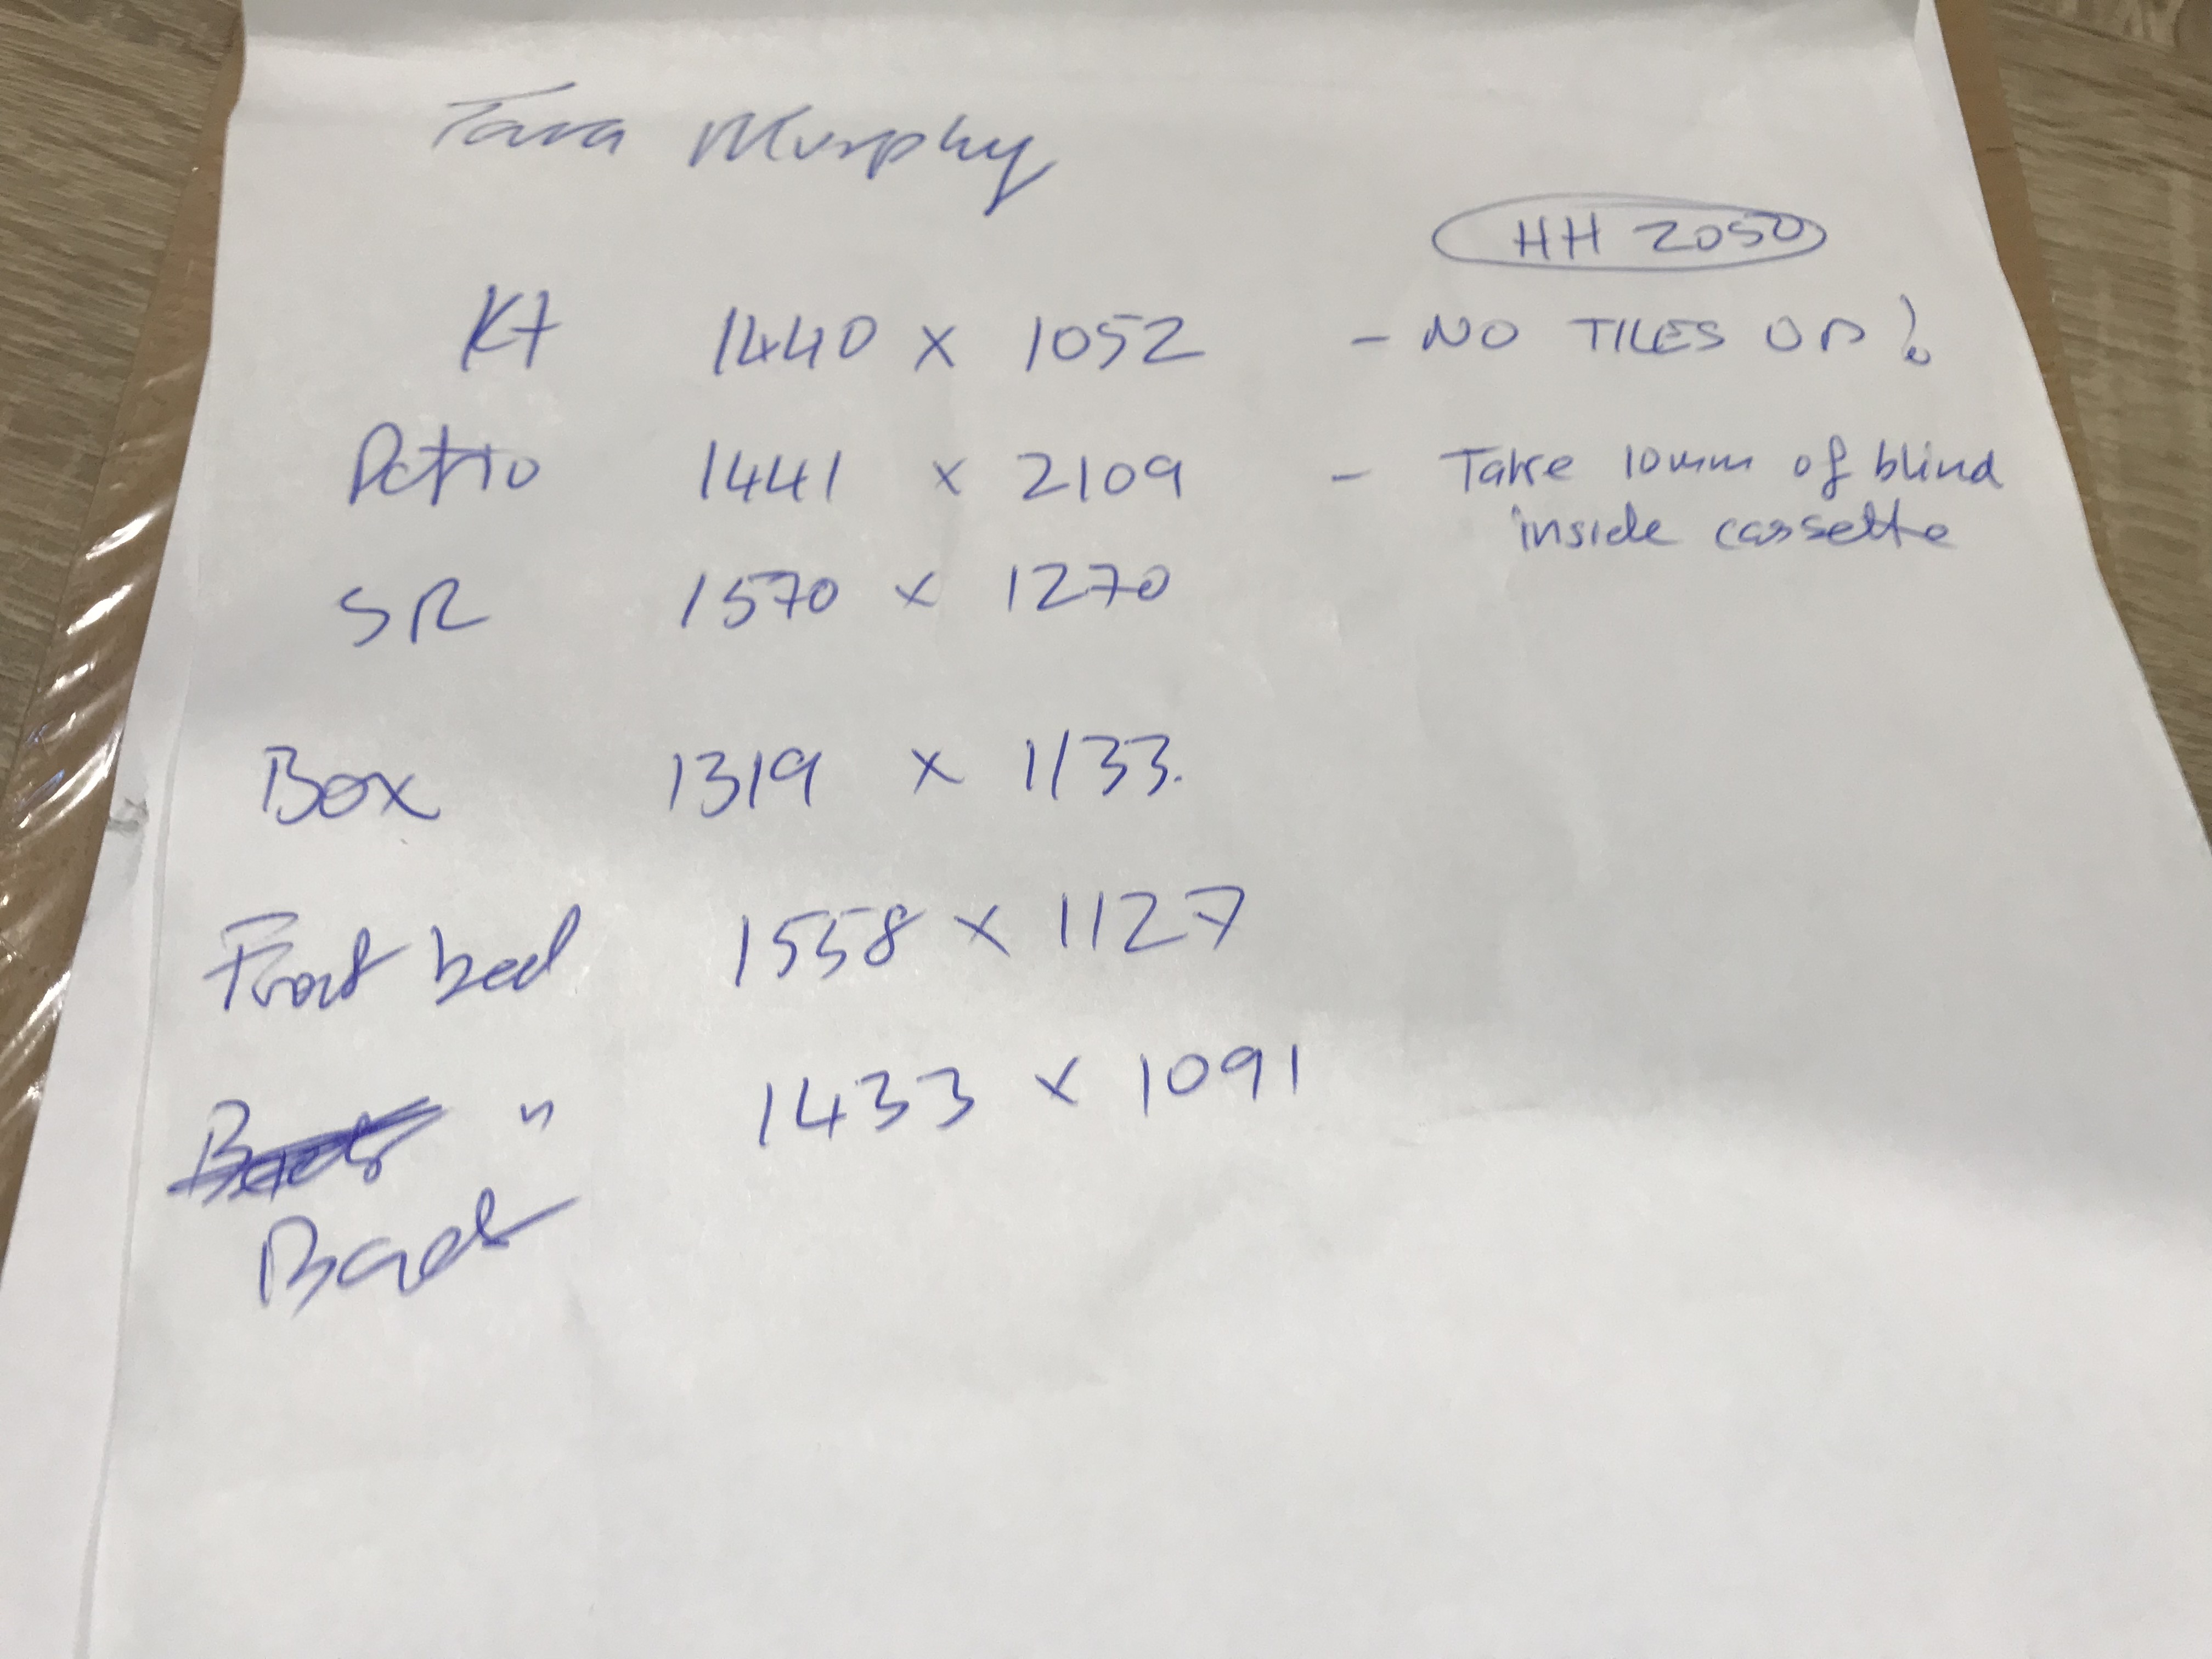 Tara Murphy
HH 2050
Kt 1440 x 1052 - NO TILES UP!
Patio 1441 x 2109 - Take 10mm of blind
inside cassette
SR 1570 x 1270
Box 1319 x 1133.
Front bed 1558 x 1127
Back " 1433 x 1091
Back